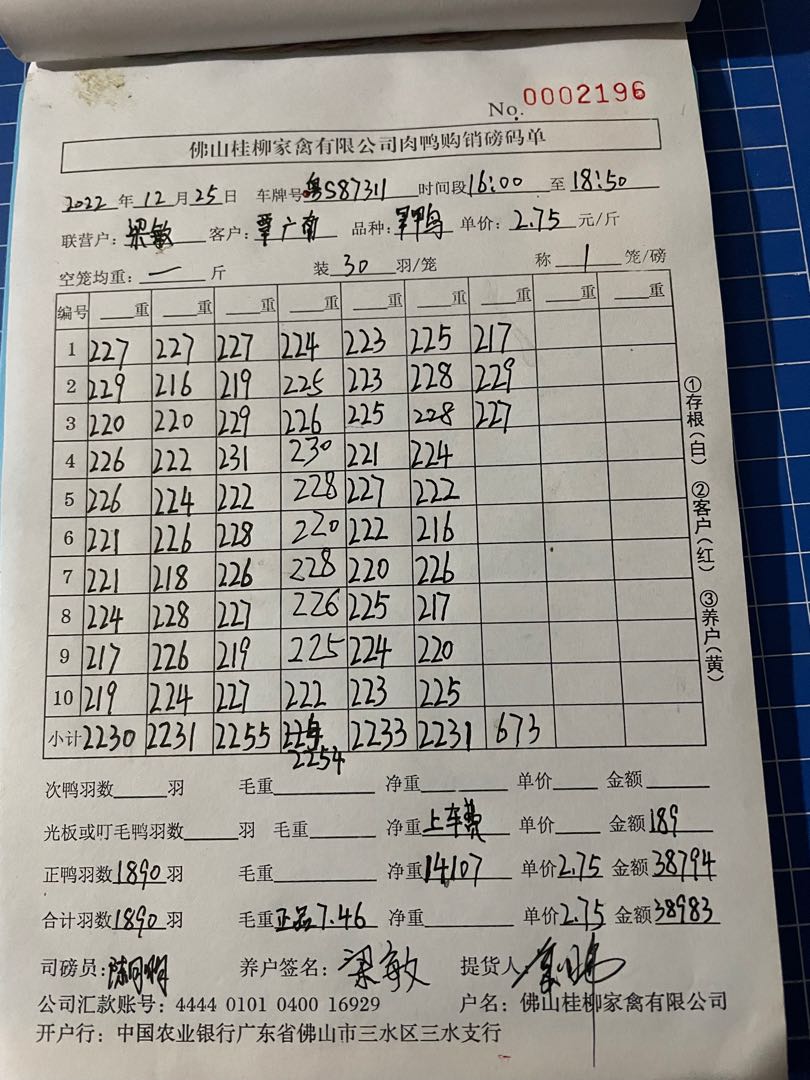 No. 0002196
佛山桂柳家禽有限公司肉鸭购销磅码单
2022 年 12 月 25 日 车牌号 粤S87311 时间段 16:00 至 18:50
联营户: 梁敏 客户: 覃广南 品种: 鸭 单价: 2.75 元/斤
空笼均重: 一 斤 装 30 羽/笼 称 1 笼/磅
编号 重 重 重 重 重 重 重 重 重
1 227 227 227 224 223 225 217
2 229 216 219 225 223 228 229
3 220 220 229 226 225 228 227
4 226 222 231 230 221 224
5 226 224 222 228 227 222
6 221 226 228 220 222 216
7 221 218 226 228 220 226
8 224 228 227 226 225 217
9 217 226 219 225 224 220
10 219 224 227 222 223 225
小计 2230 2231 2255 2254 2233 2231 673
①存根(白) ②客户(红) ③养户(黄)
次鸭羽数 羽 毛重 净重 单价 金额
光板或叮毛鸭羽数 羽 毛重 净重 上车费 单价 金额 189
正鸭羽数 1890 羽 毛重 净重 14107 单价 2.75 金额 38794
合计羽数 1890 羽 毛重 正品7.46 净重 单价 2.75 金额 38983
司磅员: 养户签名: 梁敏 提货人:
公司汇款账号: 4444 0101 0400 16929 户名: 佛山桂柳家禽有限公司
开户行: 中国农业银行广东省佛山市三水区三水支行